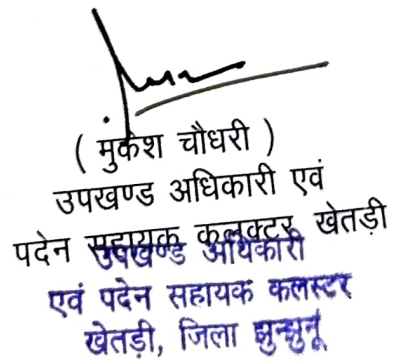 ( मुकेश चौधरी )
उपखण्ड अधिकारी एवं
पदेन सहायक कलक्टर खेतड़ी
उपखण्ड अधिकारी
एवं पदेन सहायक कलस्टर
खेतड़ी, जिला झुन्झुनूं